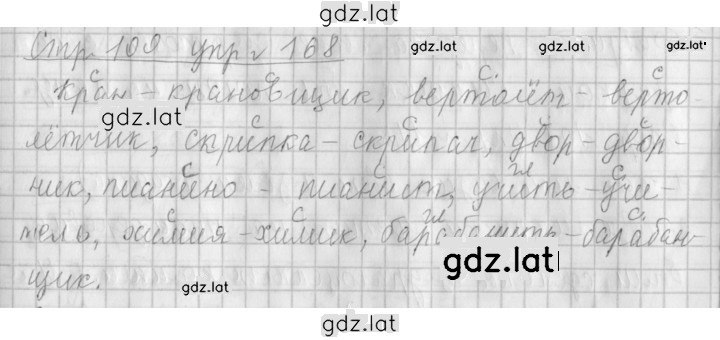 gdz.lat
gdz.lat gdz.lat gdz.lat
Стр 109 упр 168
с с с с
Кран - крановщик, вертолёт - верто-
gdz.lat
с с с с
лётчик, скрипка - скрипач, двор - двор-
с с гл с
ник, пианино - пианист, учить - учи-
с с гл с
тель, химия - химик, барабанить - барабан-
gdz.lat
щик.
gdz.lat gdz.lat
gdz.lat